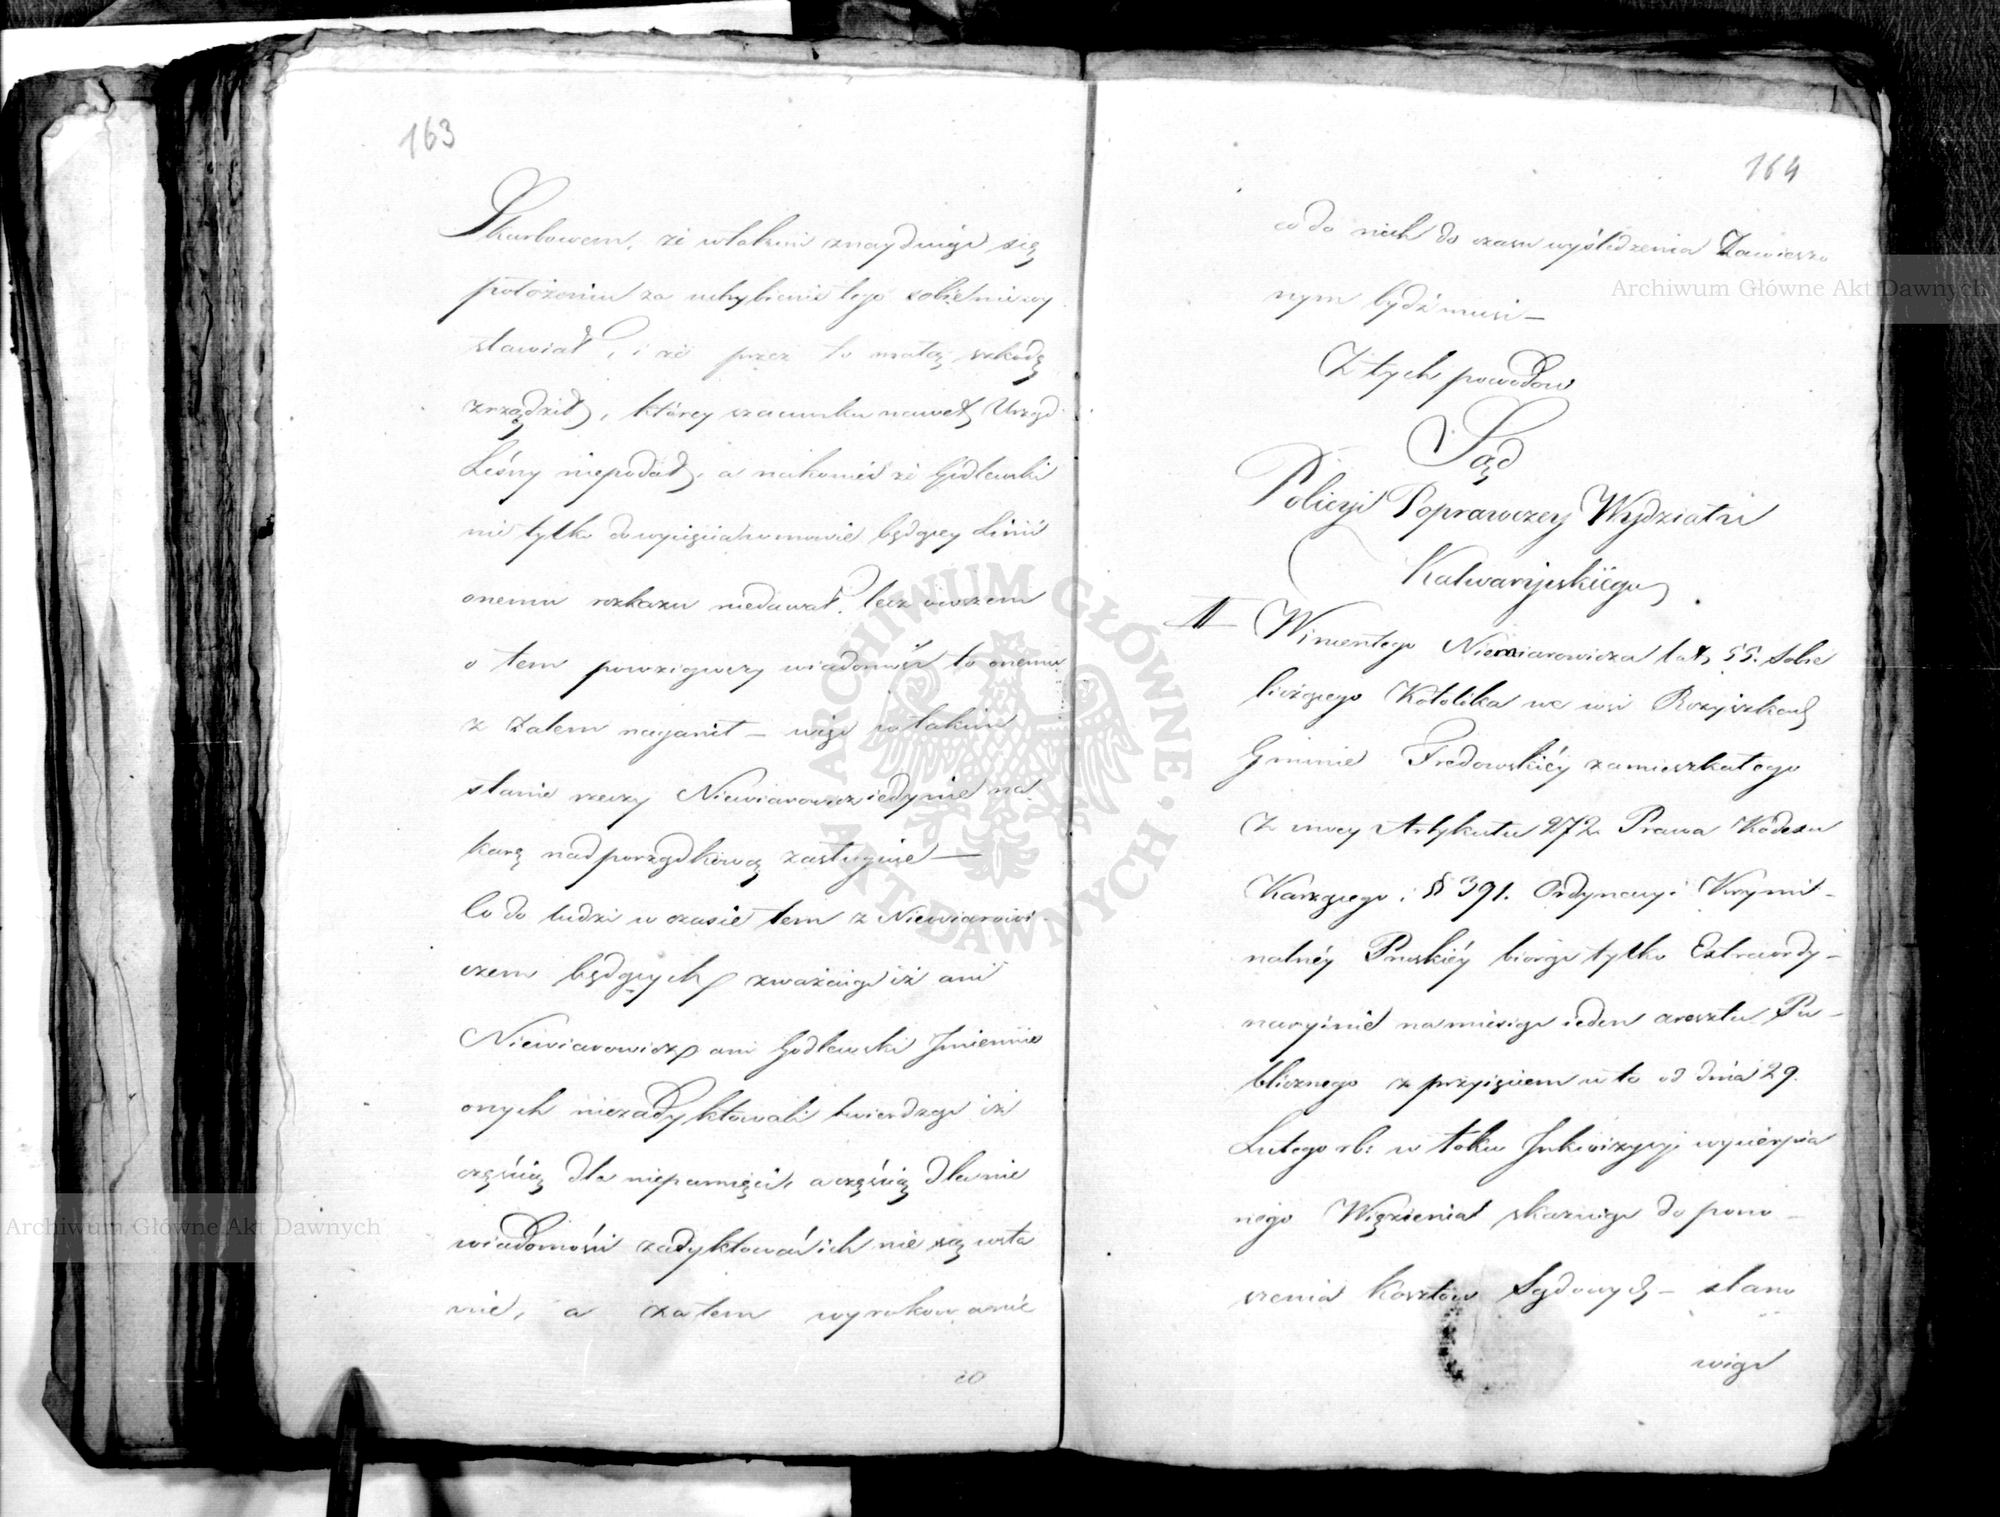 163
Skarbowem, że w takim znayduiąc się
położeniu za uchybienie tego sobie niewy
stawiał, i że przez to małą szkodę
zrządził, którey szacunku nawet Urząd
Leśny niepodał, a nakoniec że Godlewski
nie tylko do wycięcia w mowie będącey Linii
onemu rozkazu niedawał, lecz owszem
o tem powziąwszy wiadomość to onemu
z żalem naganił — więc w takim
stanie rzeczy Niewiarowicz iedynie na
karę nadporządkową zasługuie —
Co do ludzi w czasie tem z Niewiarowi
czem będących zważaiąc iż ani
Niewiarowicz ani Godlewski Jmiennie
onych niezadyktowali twierdząc iż
częścią dla niepamięci, a częścią dla nie
wiadomości zadyktować ich nie są w sta
nie, a zatem wyrokowanie
co
164
co do nich do czasu wyśledzenia Zawieszo
nym bydź musi —
Z tych powodów
Sąd
Policyi Poprawczey Wydziału
Kalwaryiskiego
Wincentego Niewiarowicza lat 55. Sobie
liczącego Katolika we wsi
Gminie Fredowskiéy zamieszkałego
Z mocy Artykułu 272 Prawa Kodexu
Karzącego i § 391. Ordynacyi Krymi-
nalnéy Pruskiéy biorąc tylko Extraordy-
naryinie na miesiąc ieden aresztu Pu-
blicznego z przyięciem w to od dnia 29.
Lutego rb: w toku Jnkwizycyi wycierpia
nego Więzienia skazuiąc do pono-
szenia Kosztów Sądowych — stano
wiąc